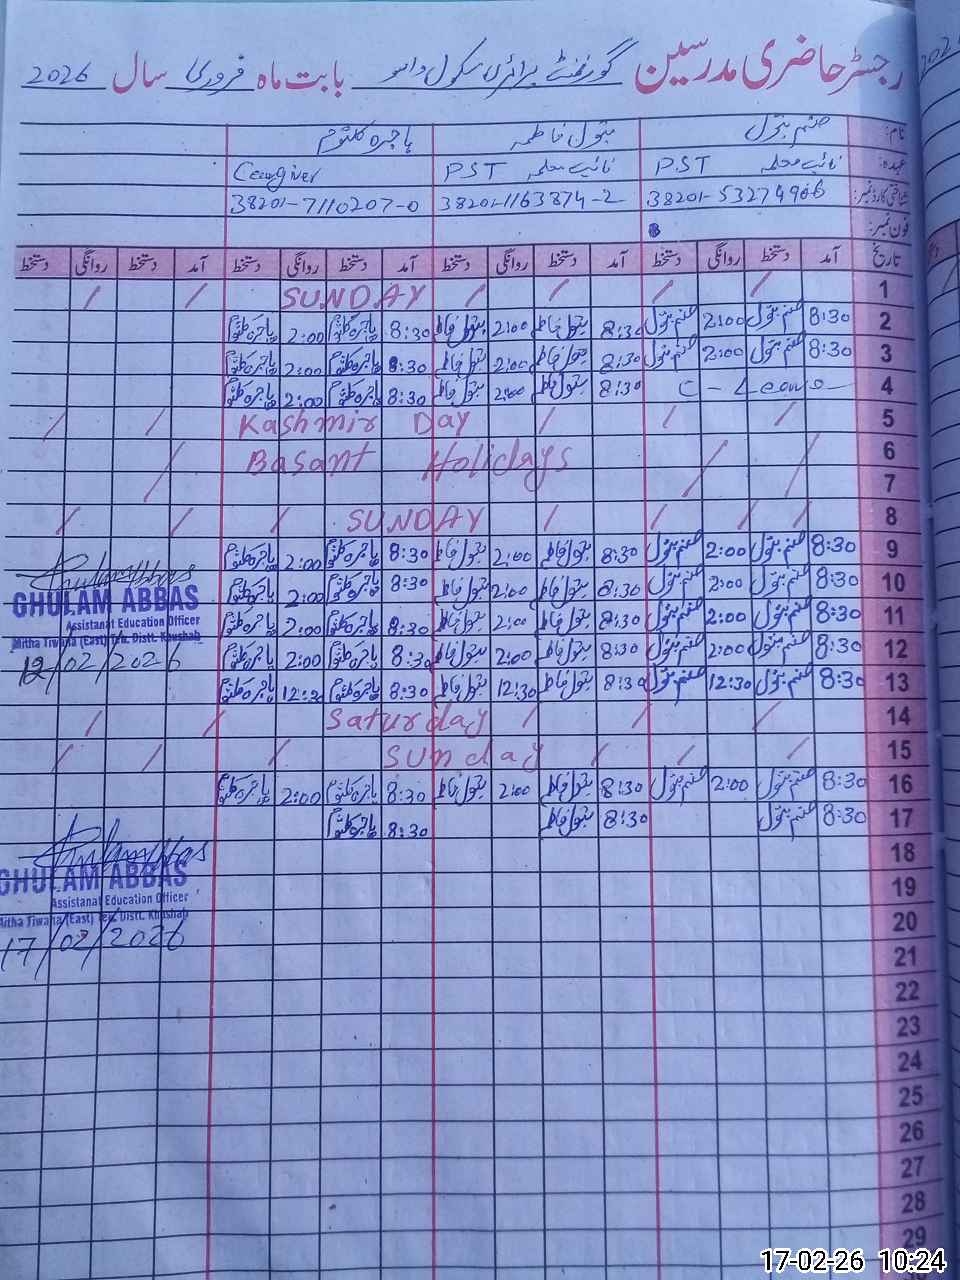 رجسٹر حاضری مدرسین گورنمنٹ پرائمری سکول بابت ماہ فروری سال 2026
نام: صنم بتول بتول فاطمہ ہاجرہ کلثوم
عہدہ: نائب معلمہ PST نائب معلمہ PST Caregiver
شناختی کارڈ نمبر: 38201-5327490-6 38201-1163874-2 38201-7110207-0
فون نمبر:
تاریخ آمد دستخط روانگی دستخط آمد دستخط روانگی دستخط آمد دستخط روانگی دستخط آمد دستخط روانگی دستخط
1 SUNDAY
2 8:30 صنم بتول 2:00 صنم بتول 8:30 بتول فاطمہ 2:00 بتول فاطمہ 8:30 ہاجرہ کلثوم 2:00 ہاجرہ کلثوم
3 8:30 صنم بتول 2:00 صنم بتول 8:30 بتول فاطمہ 2:00 بتول فاطمہ 8:30 ہاجرہ کلثوم 2:00 ہاجرہ کلثوم
4 C-Leave 8:30 بتول فاطمہ 2:00 بتول فاطمہ 8:30 ہاجرہ کلثوم 2:00 ہاجرہ کلثوم
5 Kashmir Day
6 Basant Holidays
7
8 SUNDAY
9 8:30 صنم بتول 2:00 صنم بتول 8:30 بتول فاطمہ 2:00 بتول فاطمہ 8:30 ہاجرہ کلثوم 2:00 ہاجرہ کلثوم
10 8:30 صنم بتول 2:00 صنم بتول 8:30 بتول فاطمہ 2:00 بتول فاطمہ 8:30 ہاجرہ کلثوم 2:00 ہاجرہ کلثوم
11 8:30 صنم بتول 2:00 صنم بتول 8:30 بتول فاطمہ 2:00 بتول فاطمہ 8:30 ہاجرہ کلثوم 2:00 ہاجرہ کلثوم
12 8:30 صنم بتول 2:00 صنم بتول 8:30 بتول فاطمہ 2:00 بتول فاطمہ 8:30 ہاجرہ کلثوم 2:00 ہاجرہ کلثوم
13 8:30 صنم بتول 12:30 صنم بتول 8:30 بتول فاطمہ 12:30 بتول فاطمہ 8:30 ہاجرہ کلثوم 12:30 ہاجرہ کلثوم
GHULAM ABBAS
Assistanat Education Officer
Mitha Tiwana (East) Teh. Distt. Khushab
12/02/2026
14 Saturday
15 Sunday
16 8:30 صنم بتول 2:00 صنم بتول 8:30 بتول فاطمہ 2:00 بتول فاطمہ 8:30 ہاجرہ کلثوم 2:00 ہاجرہ کلثوم
17 8:30 صنم بتول 8:30 بتول فاطمہ 8:30 ہاجرہ کلثوم
18
19
20
GHULAM ABBAS
Assistanat Education Officer
Mitha Tiwana (East) Teh. Distt. Khushab
17/02/2026
21
22
23
24
25
26
27
28
29
17-02-26 10:24